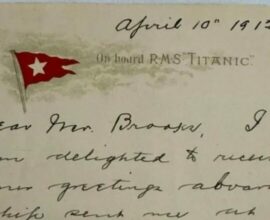 April 10th 191
On board R.M.S. "TITANIC".
ear Mr. Brooks, I
m delighted to recei
our greetings aboar
ship sent me at